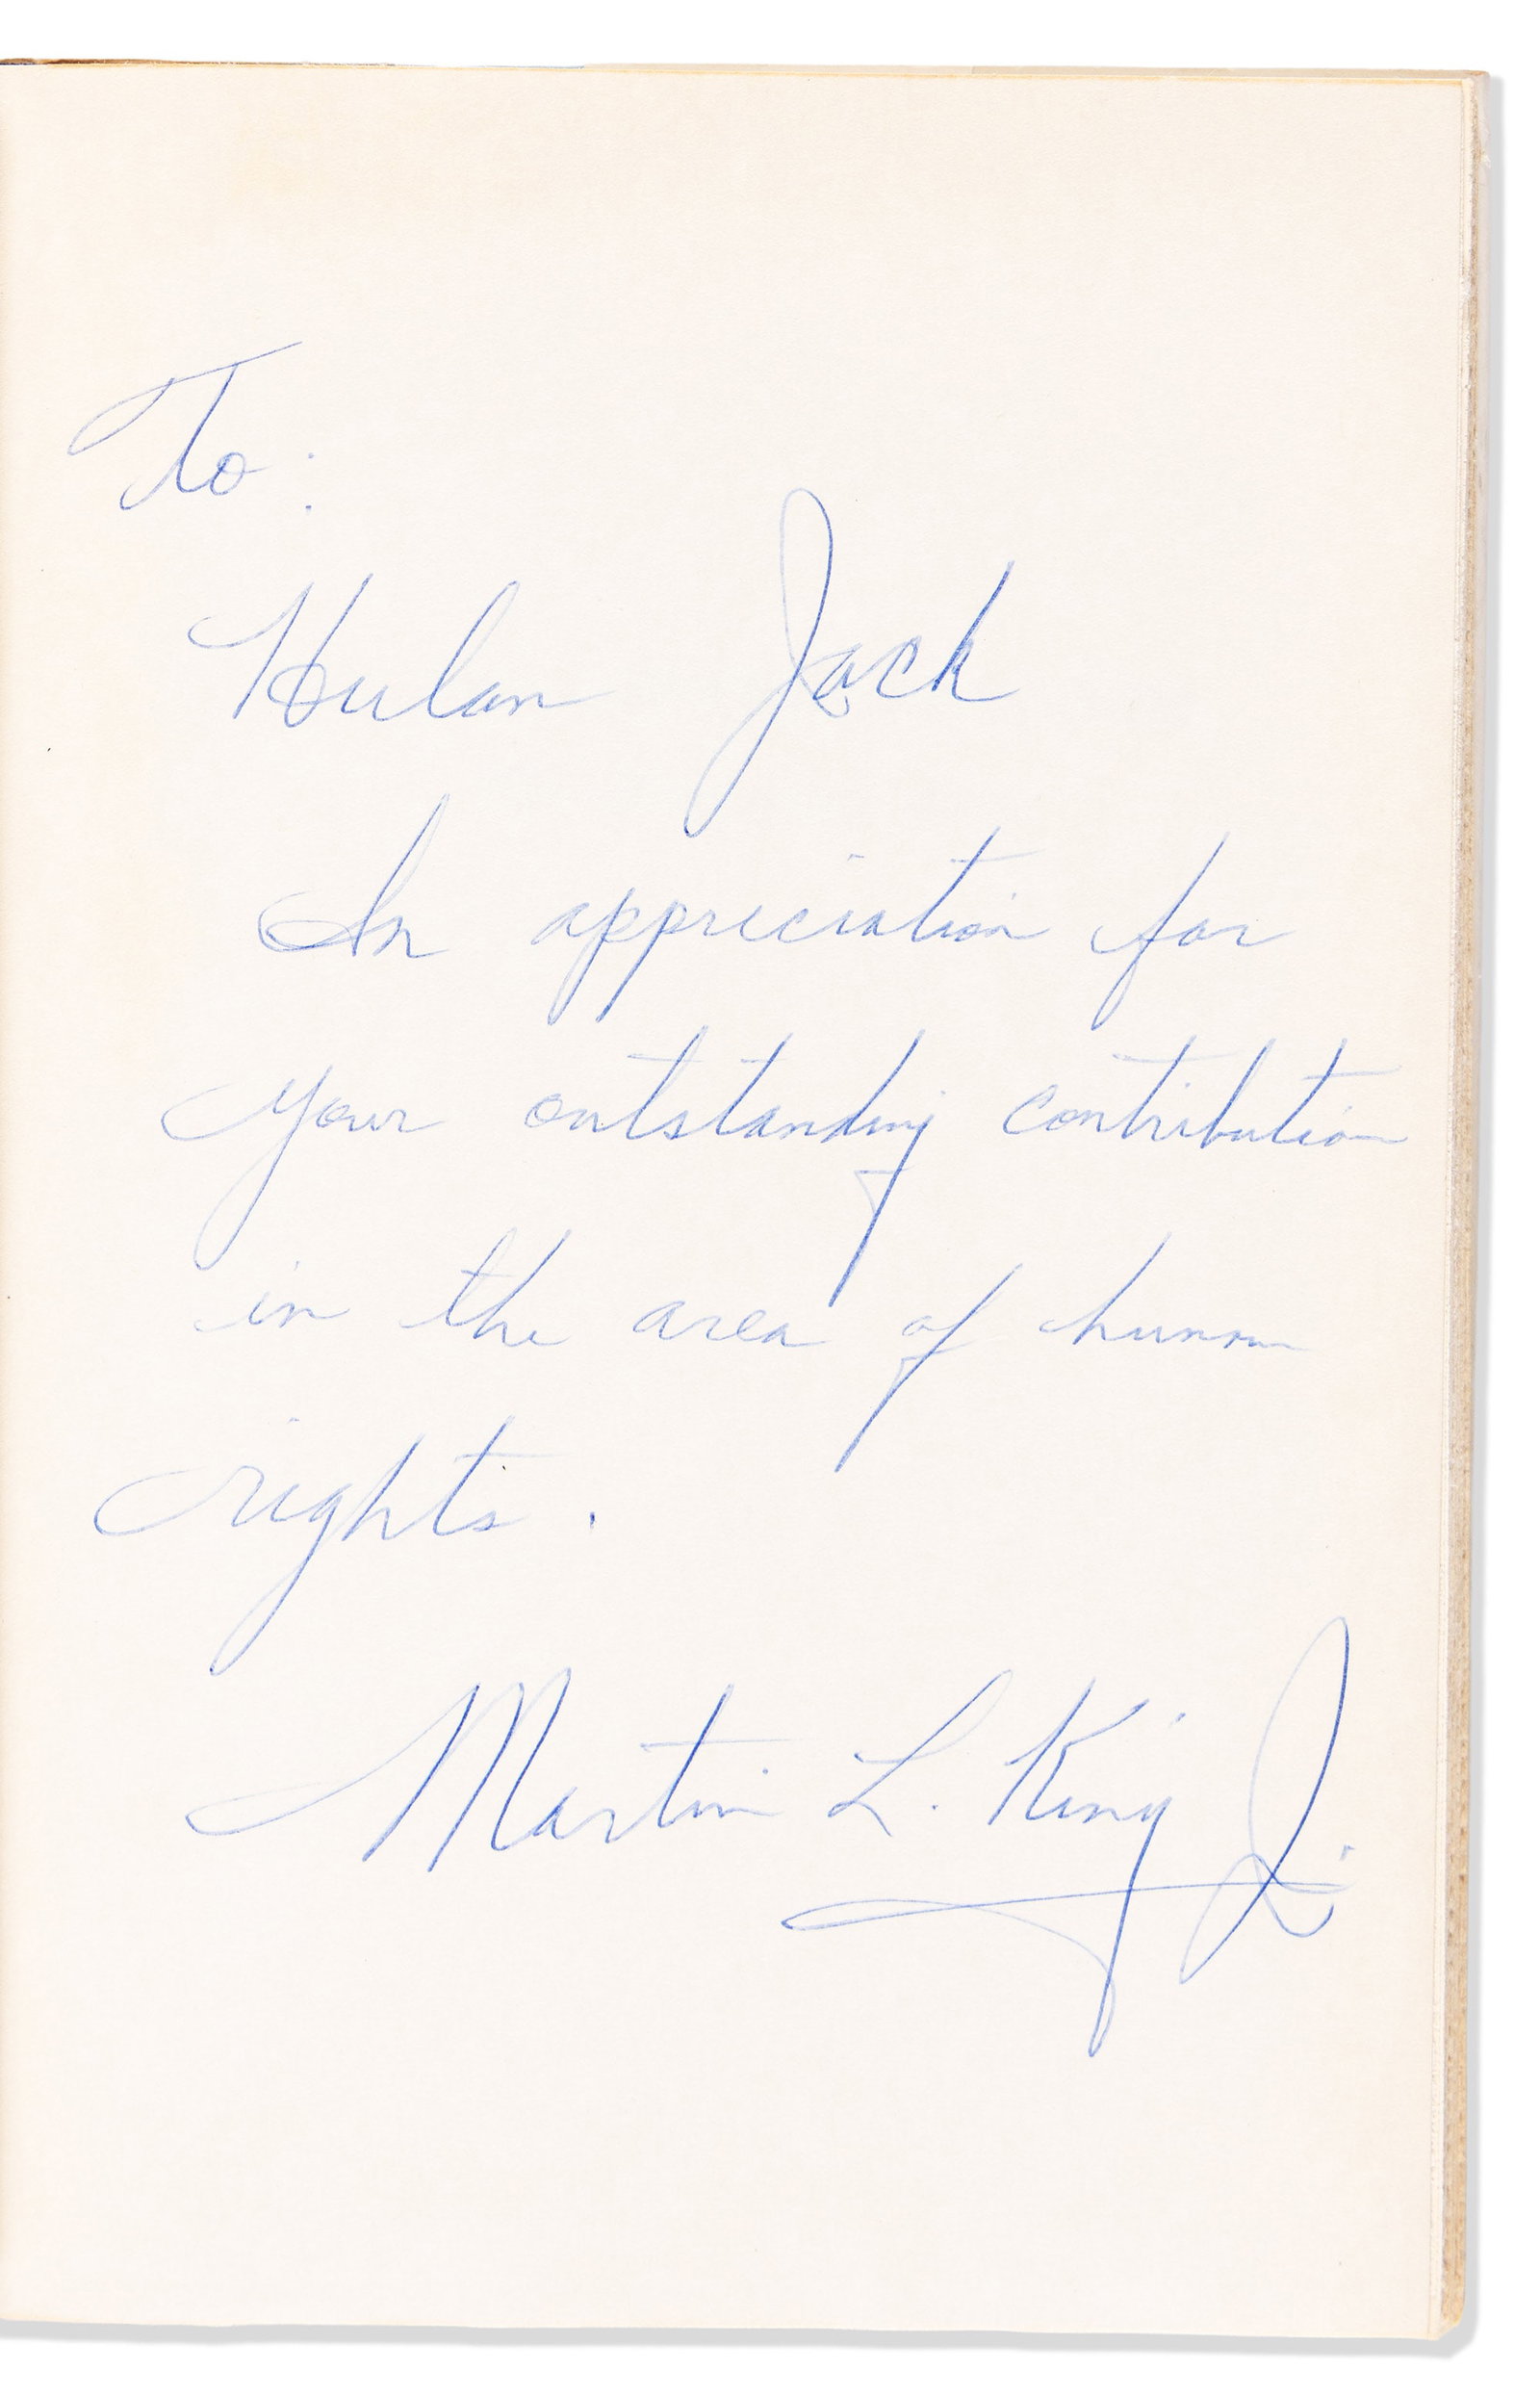 To:
Hulan Jack
In appreciation for
your outstanding contribution
in the area of human
rights.
Martin L. King Jr.